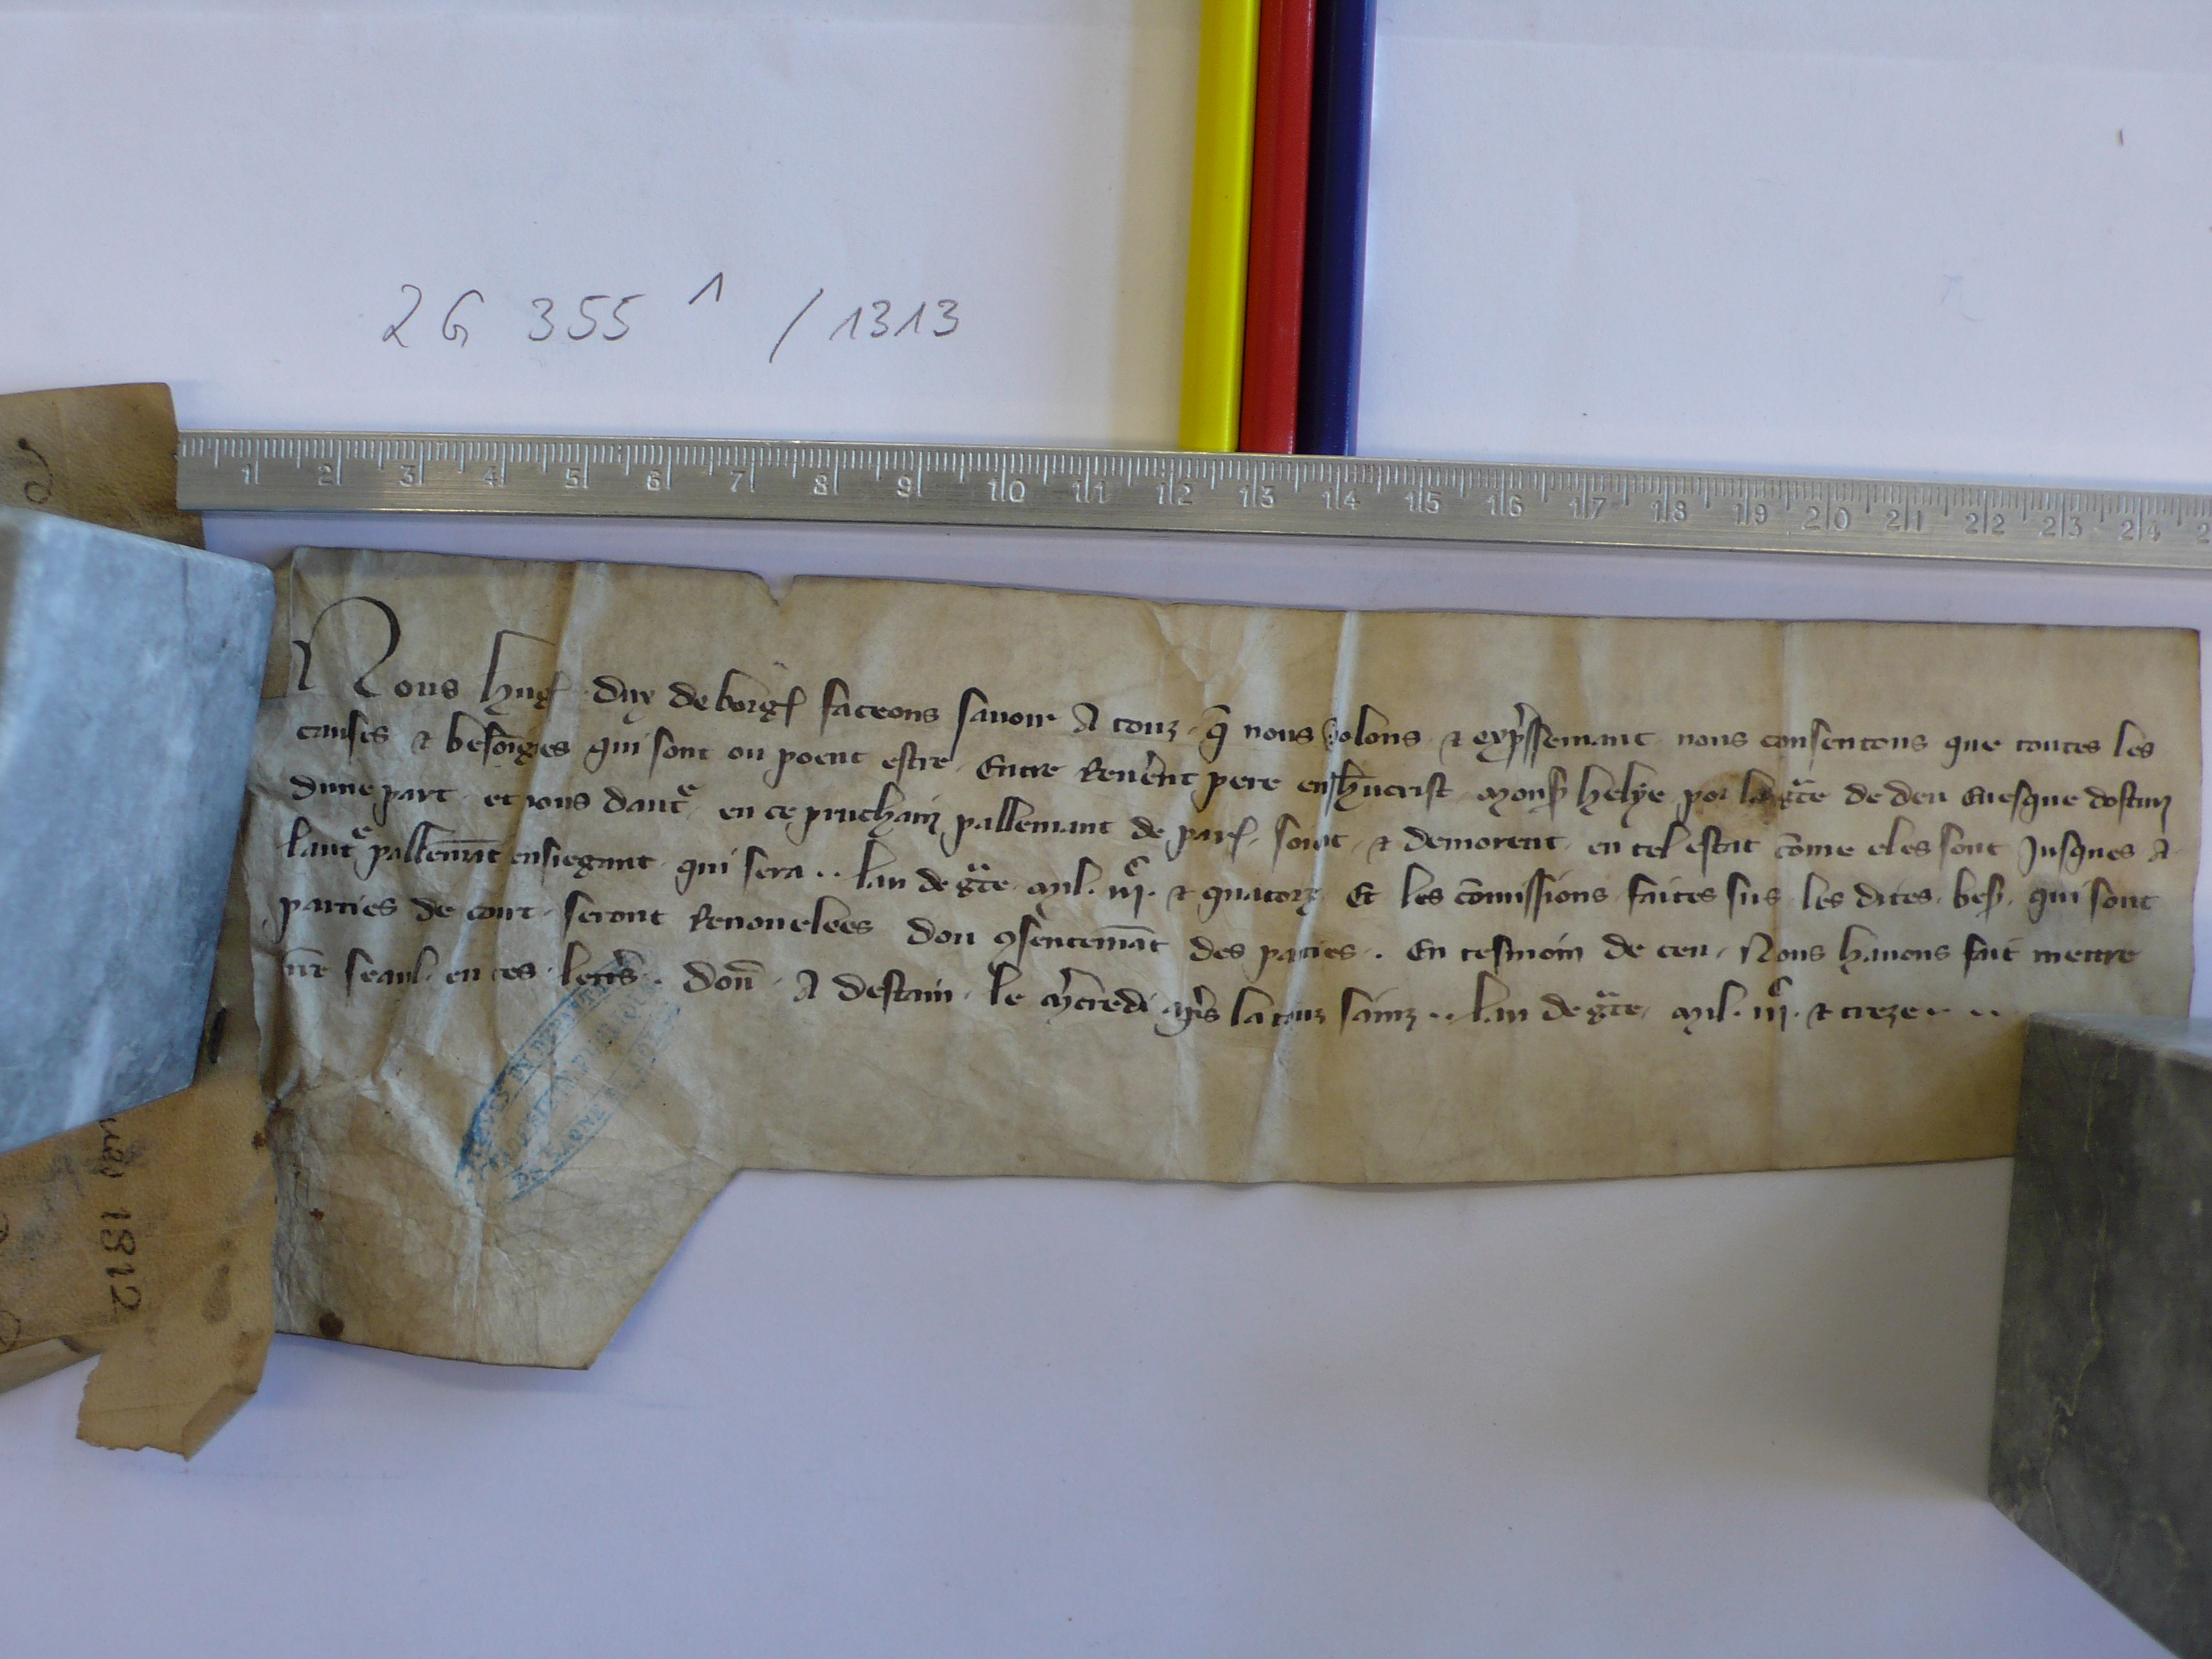 2G 355 1 / 1313
1 2 3 4 5 6 7 8 9 10 11 12 13 14 15 16 17 18 19 20 21 22 23 24 2
Nous hug dux de borg faceons savoir A touz q̄ nous volons ⁊ exp̄ssemant nous consentons que toutes les
causes ⁊ besoīgnes qui sont ou poent estre Entre Reu̾ent pere en jh̄ucrist mons helye por la gᵃce de deu Evesque dostun
dune part et nous dautᵉ en ce pruchain pallemant de par soint ⁊ demorent en tel estat cōme eles sont Jusques A
lautᵉ pallemāt ensiegant qui sera .. lan de gᵃce mil. iijᶜ. ⁊ quatorz Et les cōmissions faites sus les dites bes. qui sont
parties de court seront Renovelees dou ꝯsentemāt des parties. En tesmoin de ceu Nous havons fait mettre
nr̄e seaul en ces lettr̄s. Don̄ A Ostun le m̾credi apr̄s la touz sainz .. lan de gᵃce mil. iijᶜ. ⁊ treze . ..
1312